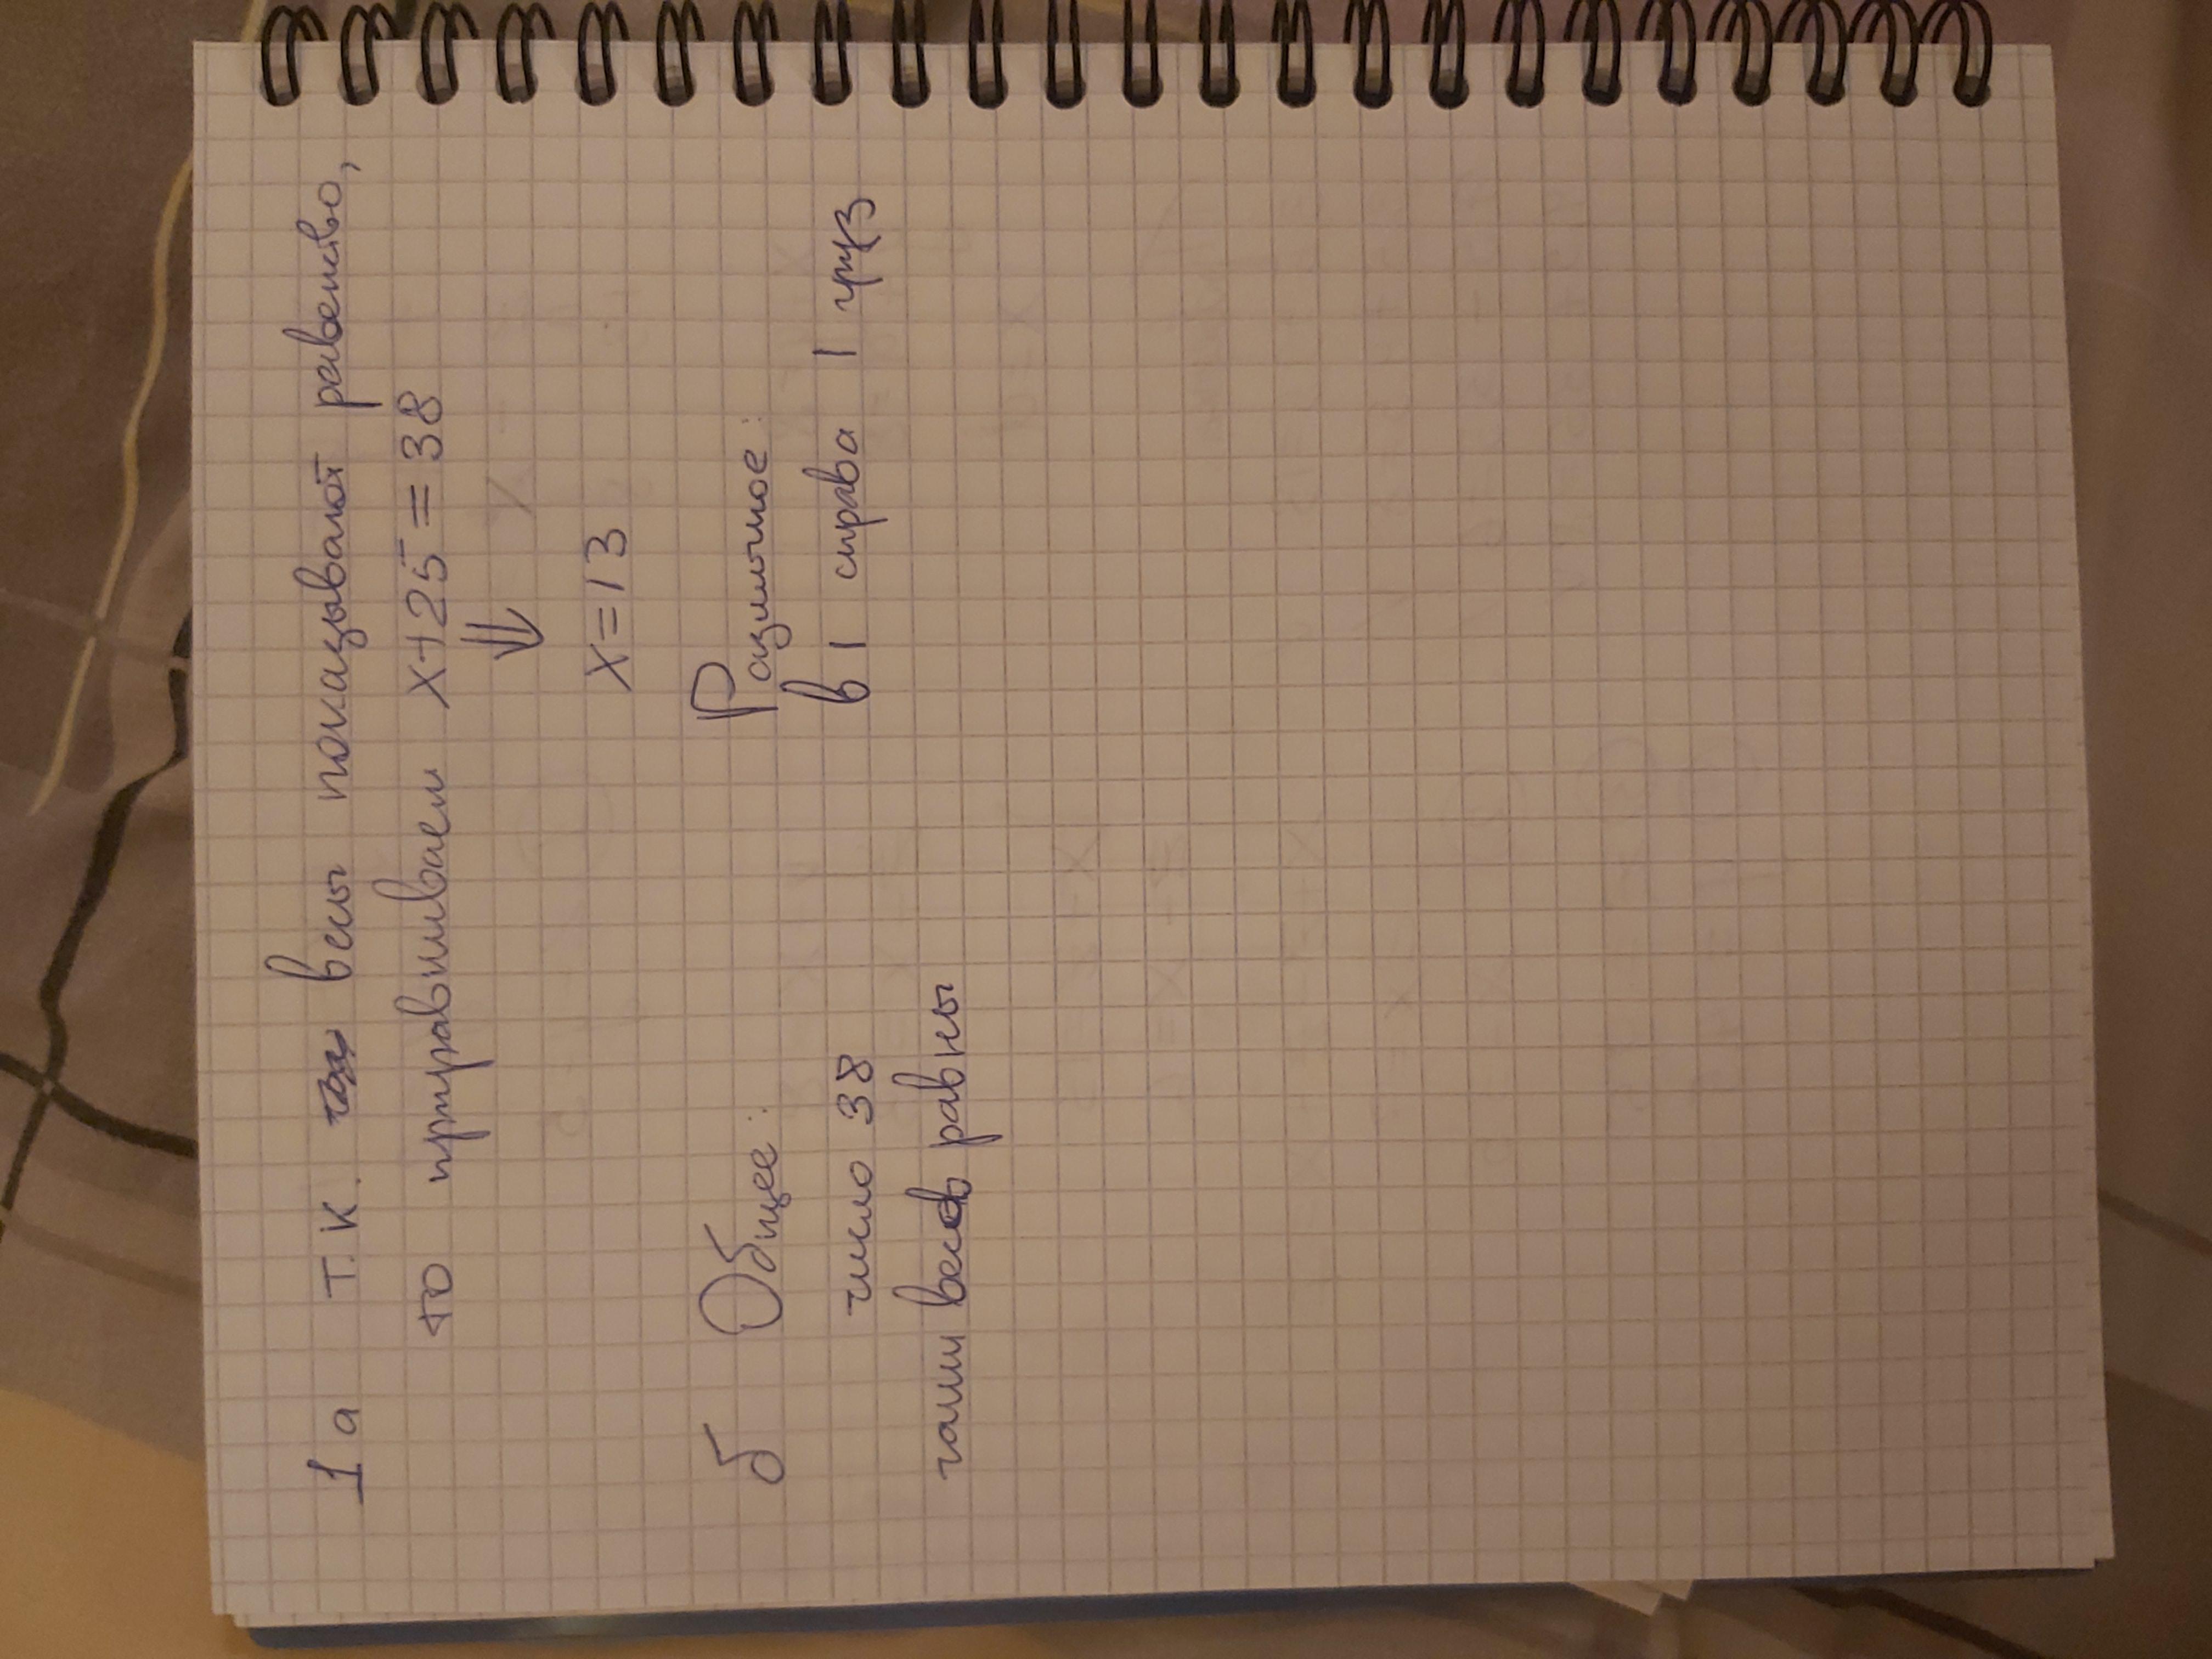 1 а т.к. весы показывают равенство,
то приравниваем x+25=38
⇓
x=13
б Общее: Различное:
число 38 в 1 справа 1 груз
чаши весов равны